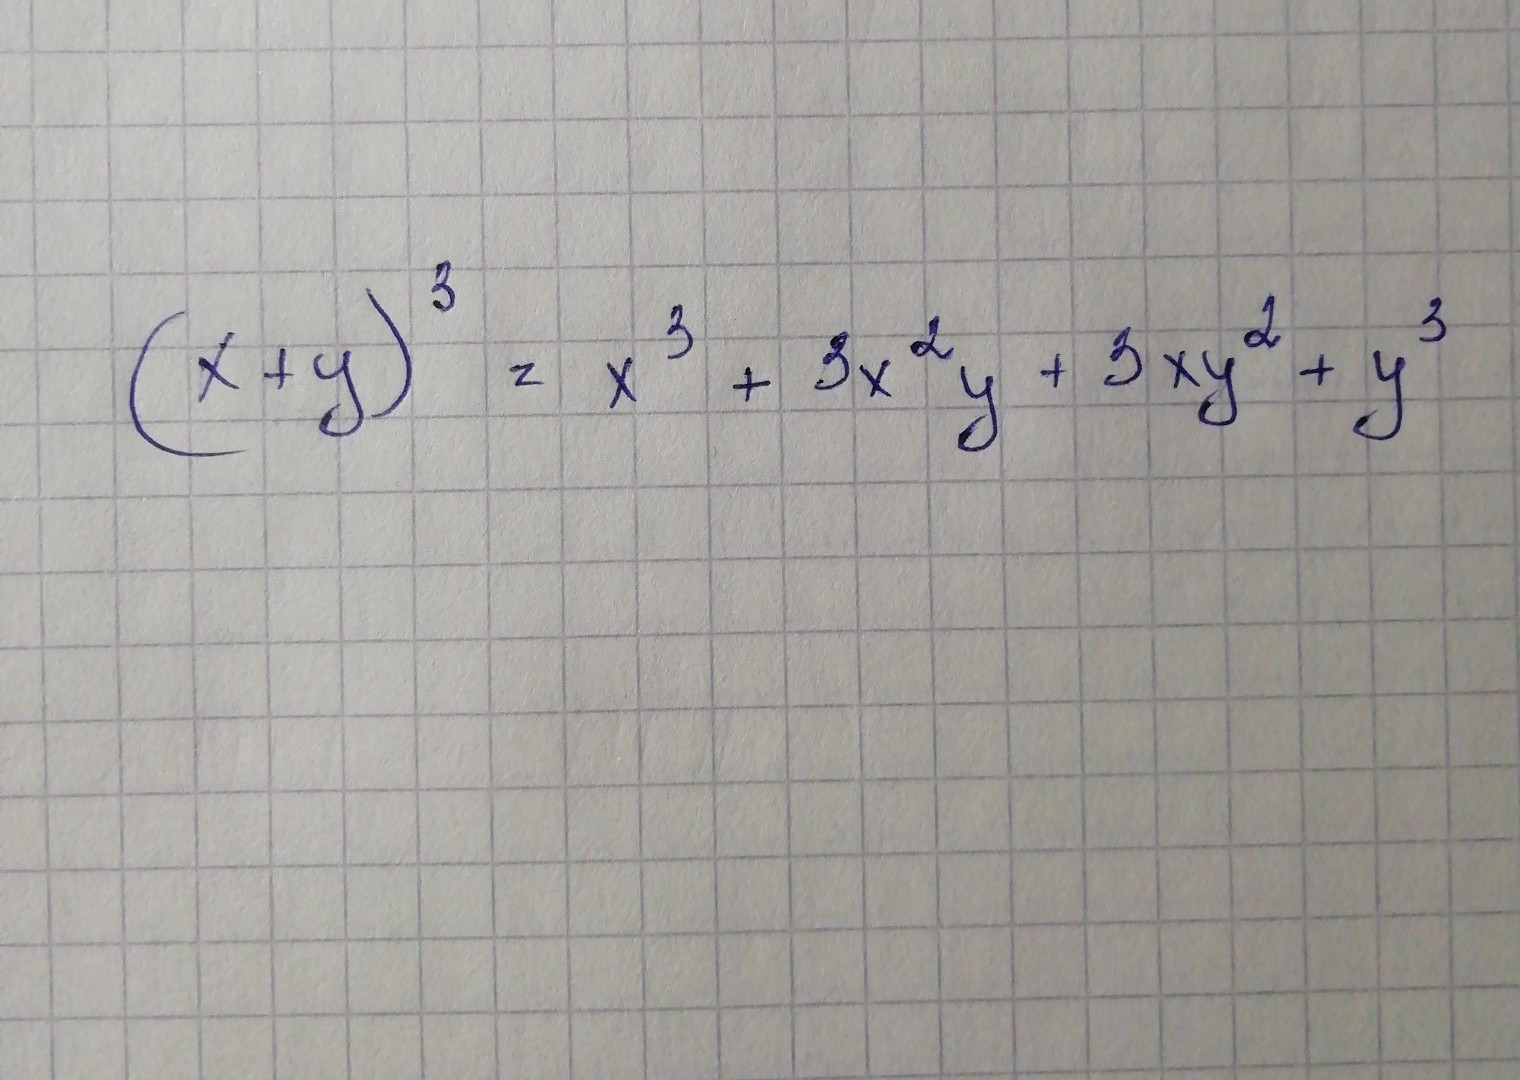 (x+y)³ = x³ + 3x²y + 3xy² + y³